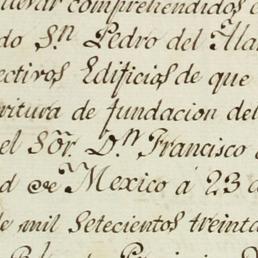 comprehendidos
do Sn Pedro del
ectivos Edificios de que
ritura de fundacion del
el Sõr. Dn Francisco
d de Mexico á 23 d
de mil setecientos treinta